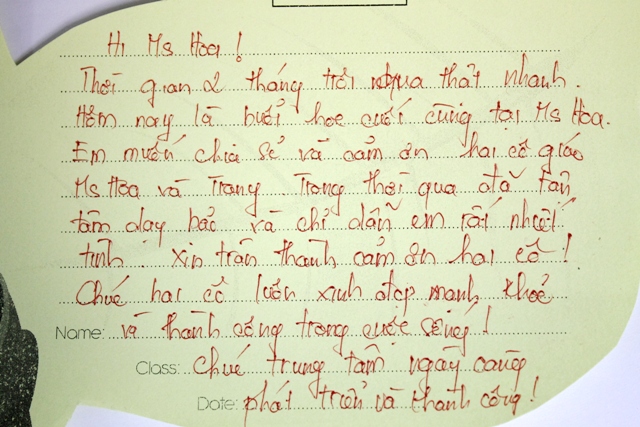 Hi Ms Hoa!
Thời gian 2 tháng trôi qua thật nhanh.
Hôm nay là buổi học cuối cùng tại Ms Hoa.
Em muốn chia sẻ và cảm ơn hai cô giáo
Ms Hoa và Trang Trong thời qua đã tận
tâm dạy bảo và chỉ dẫn em rất nhiệt
tình. xin trân thành cảm ơn hai cô!
Chúc hai cô luôn xinh đẹp mạnh khoẻ
Name: và thành công trong cuộc sống!
Class: Chúc trung tâm ngày càng
Date: phát triển và thành công!